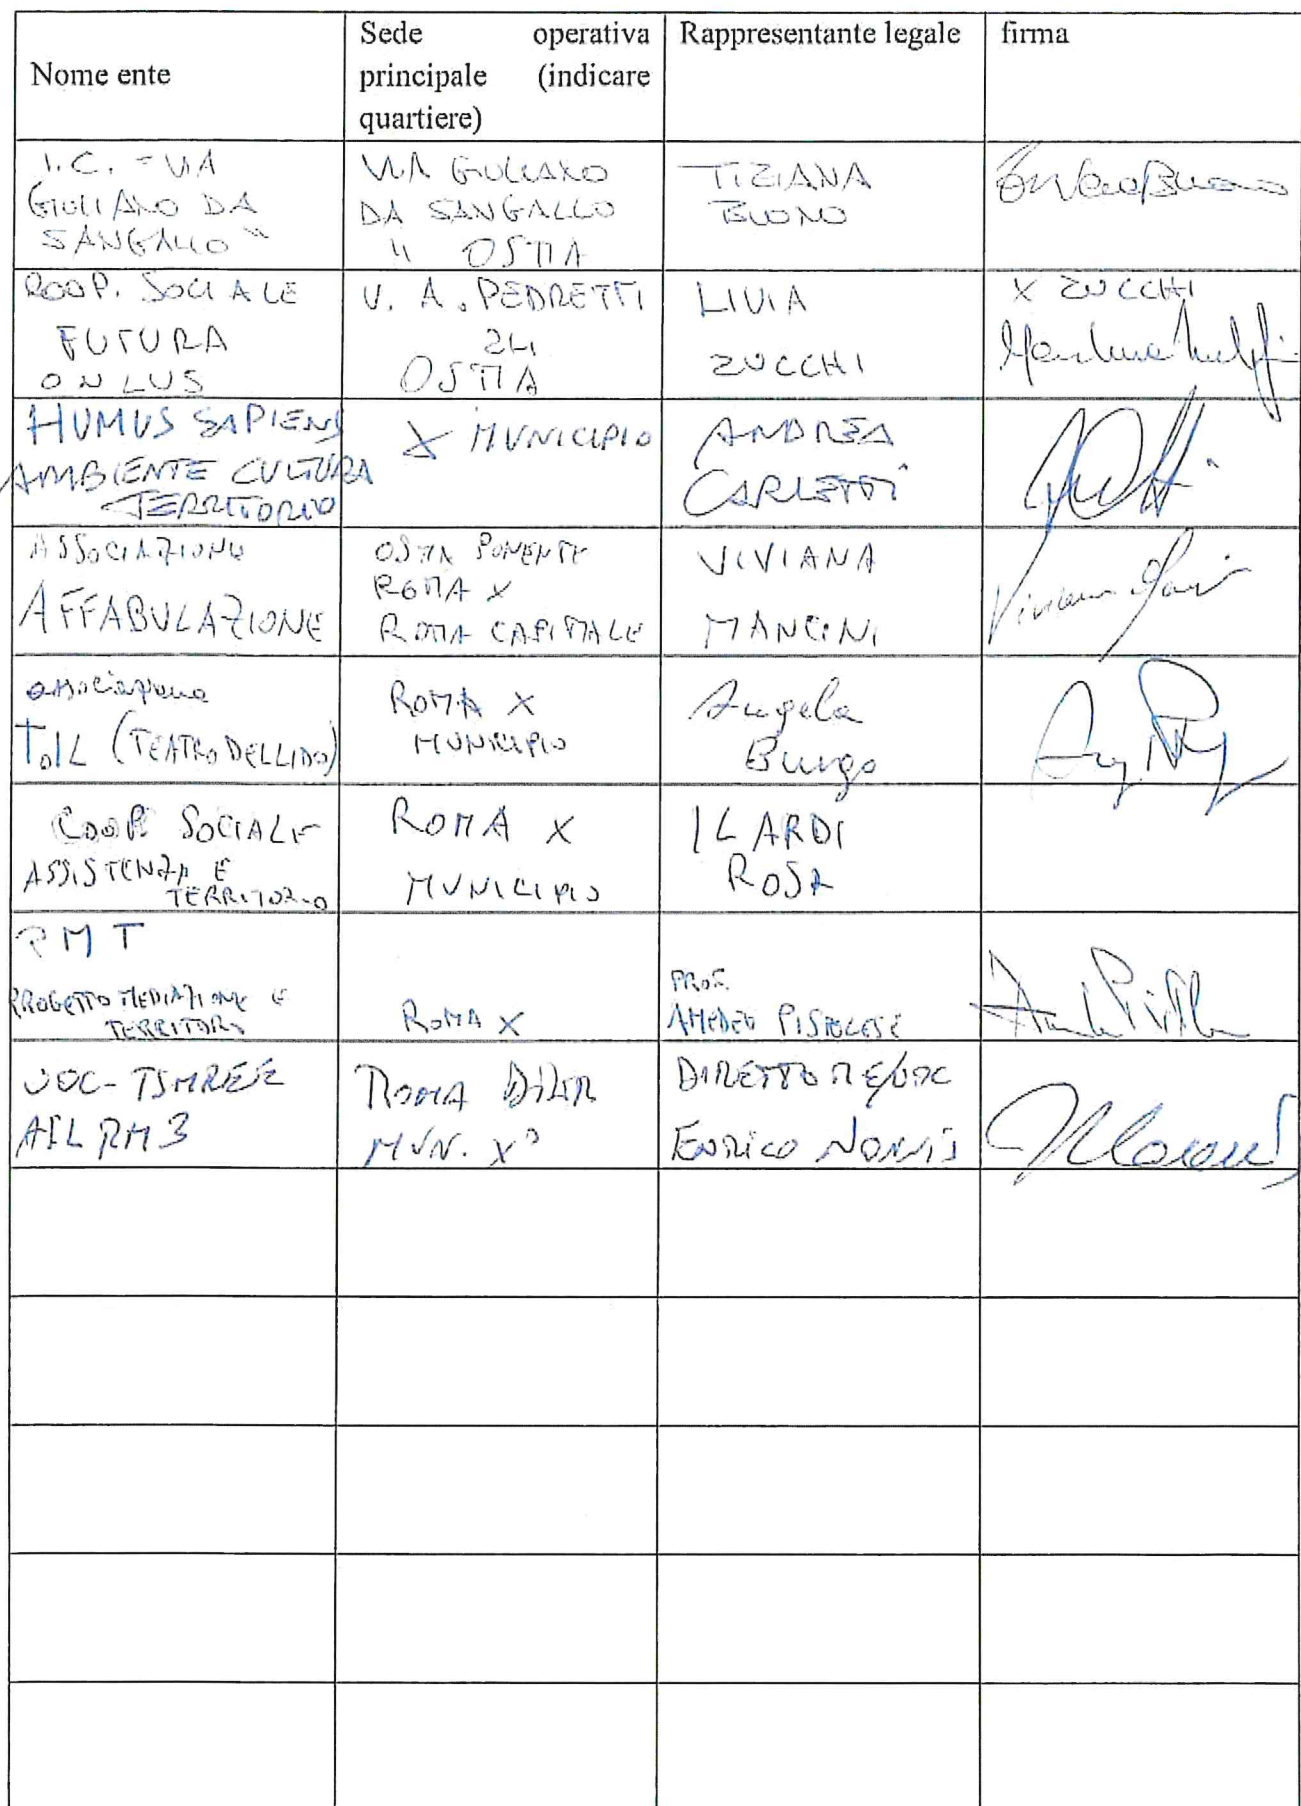 Nome ente
Sede operativa
principale (indicare
quartiere)
Rappresentante legale
firma
I.C. "VIA
GIULIANO DA
SANGALLO"
VIA GIULIANO
DA SANGALLO
" OSTIA
TIZIANA
BUONO
COOP. SOCIALE
FUTURA
ONLUS
V. A. PEDRETTI
24
OSTIA
LIVIA
ZUCCHI
X ZUCCHI
HUMUS SAPIENS
AMBIENTE CULTURA
TERRITORIO
X MUNICIPIO
ANDREA
CARLETTI
ASSOCIAZIONE
AFFABULAZIONE
OSTIA PONENTE
ROMA X
ROMA CAPITALE
VIVIANA
MANCINI
Viviana
associazione
TDL (TEATRO DEL LIDO)
ROMA X
MUNICIPIO
Angela
Burgo
COOP. SOCIALE
ASSISTENZA E
TERRITORIO
ROMA X
MUNICIPIO
ILARDI
ROSA
PMT
PROGETTO MEDIAZIONE E
TERRITORI
ROMA X
PROF.
AMEDEO PISTOLESE
UOC-TSMREE
ASL RM3
ROMA
MUN. X°
DIRETTORE/UOC
ENRICO NONNIS